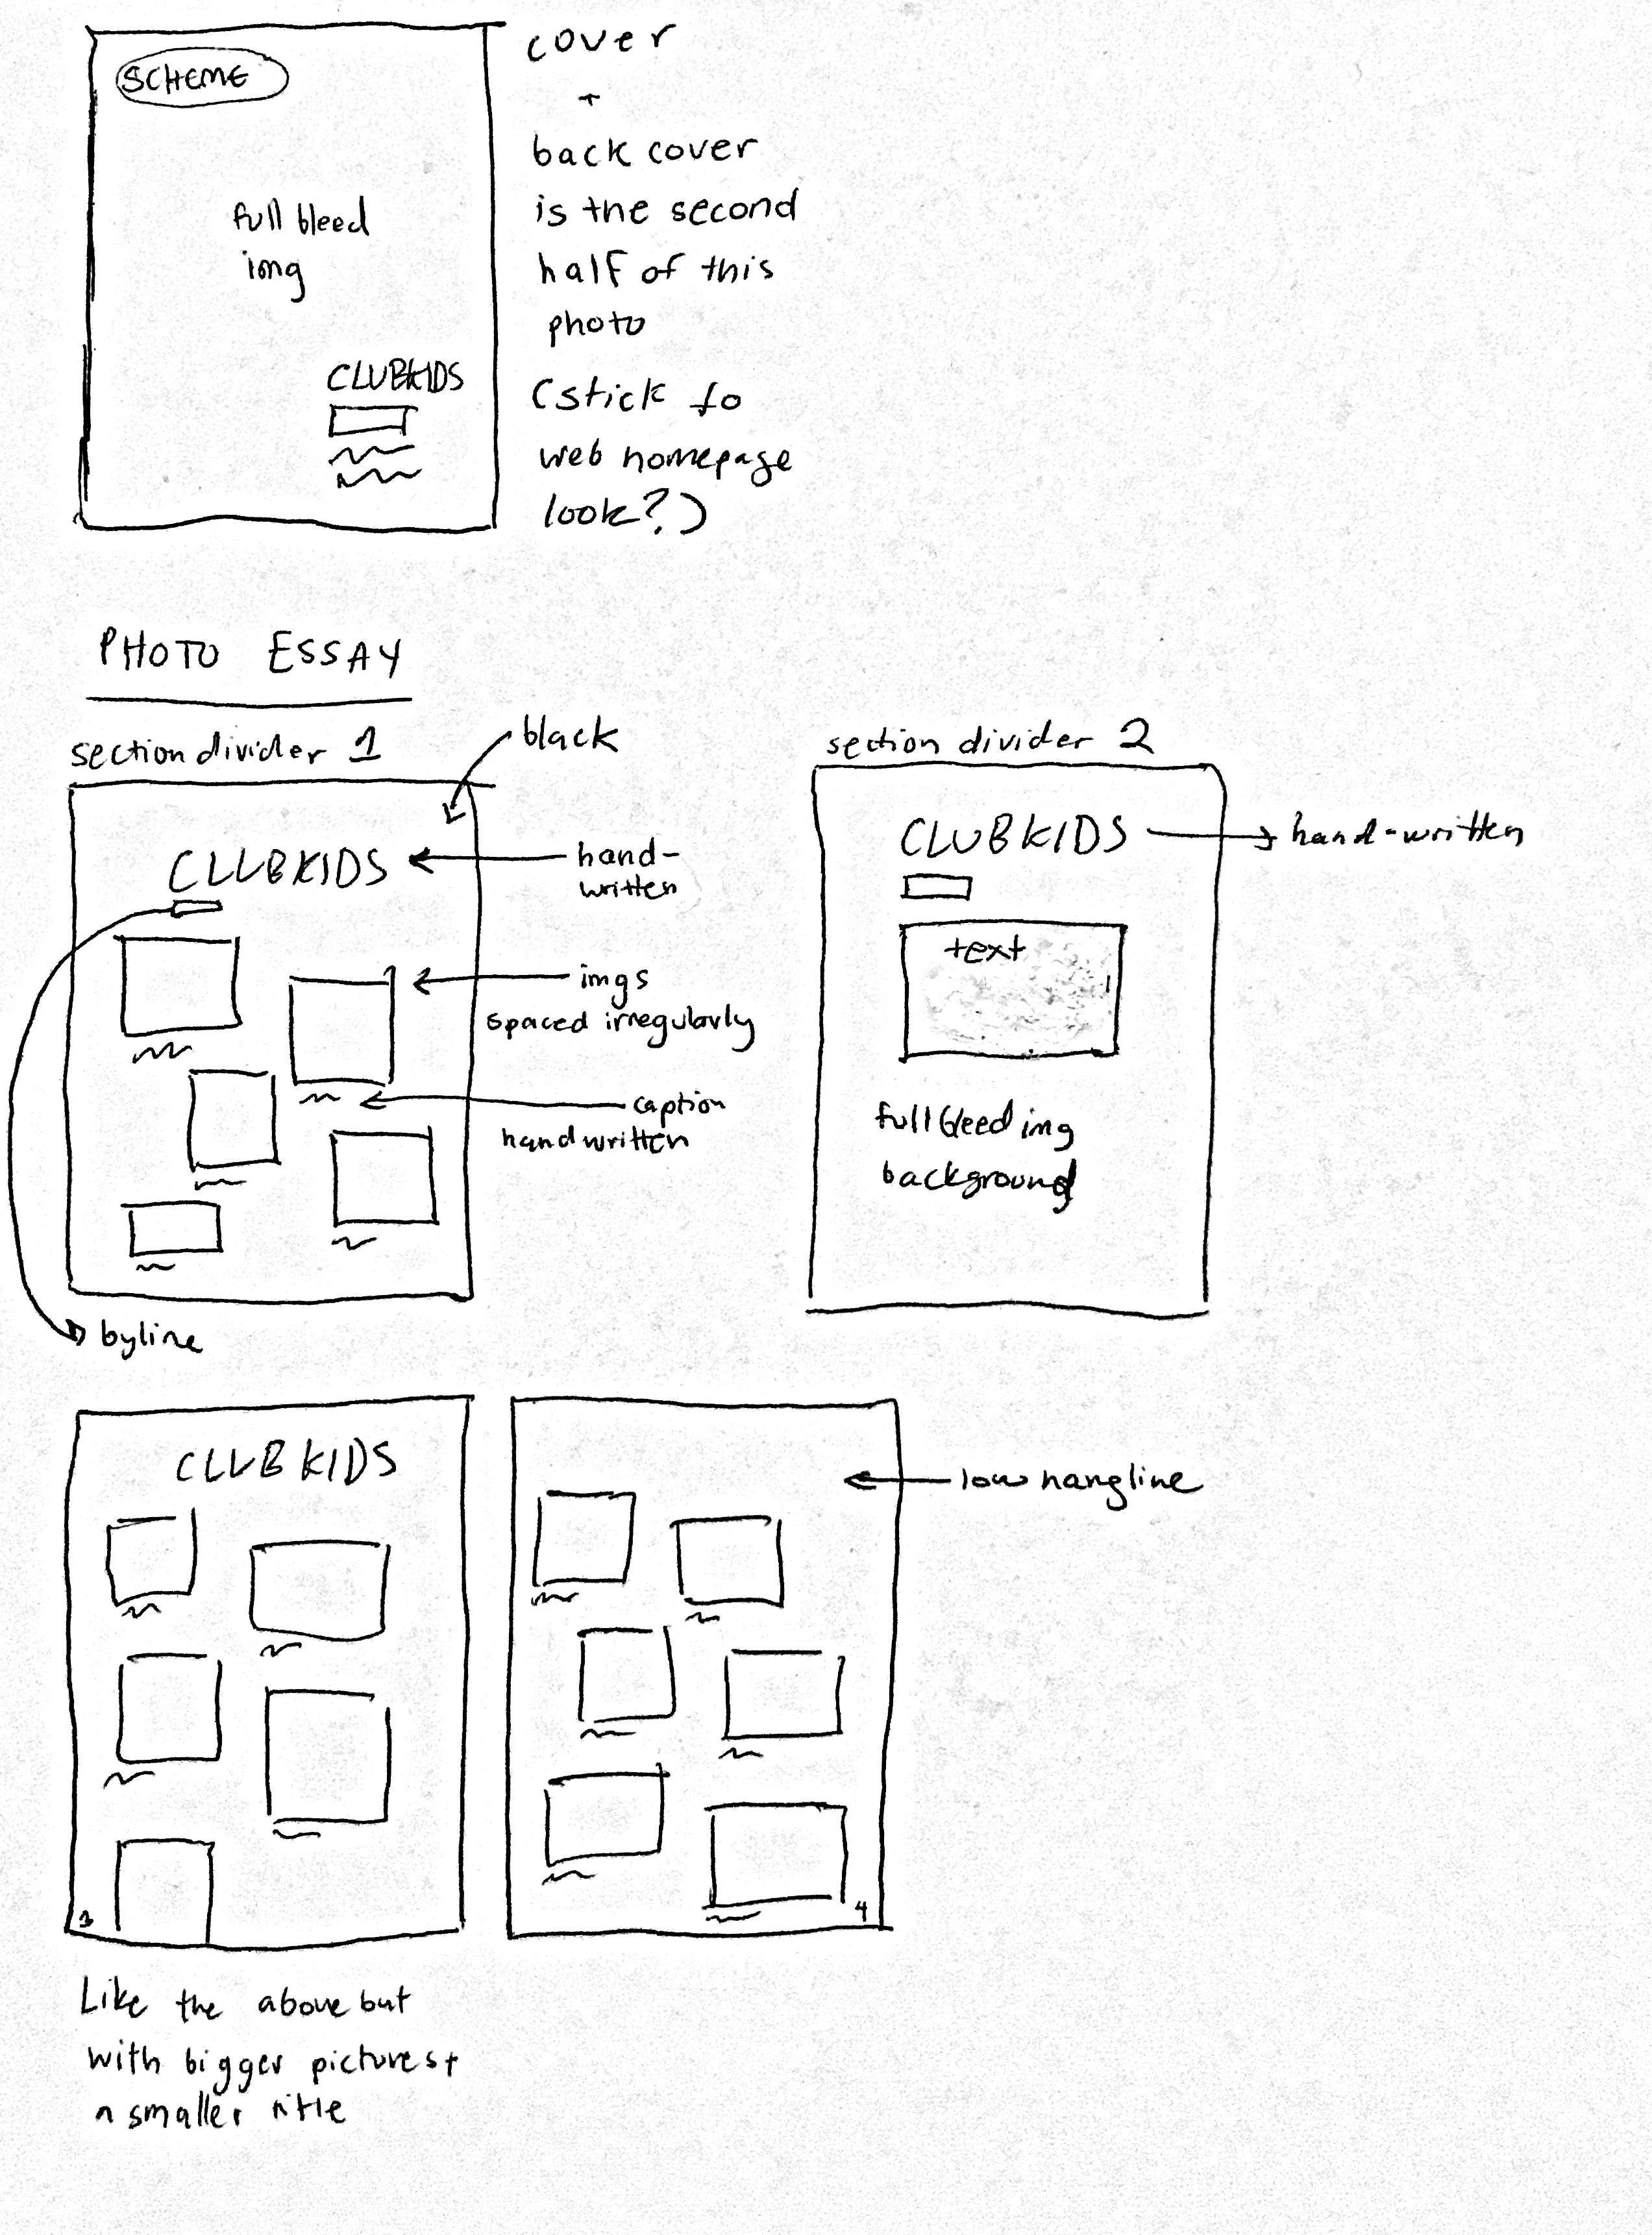 SCHEME
full bleed
img
CLUBKIDS
cover
+
back cover
is the second
half of this
photo
(stick to
web homepage
look?)
PHOTO ESSAY
section divider 1
black
CLUBKIDS
hand-
written
imgs
spaced irregularly
caption
handwritten
byline
section divider 2
CLUBKIDS
hand-written
text
full bleed img
background
CLUBKIDS
3
low hangline
4
Like the above but
with bigger pictures +
a smaller title